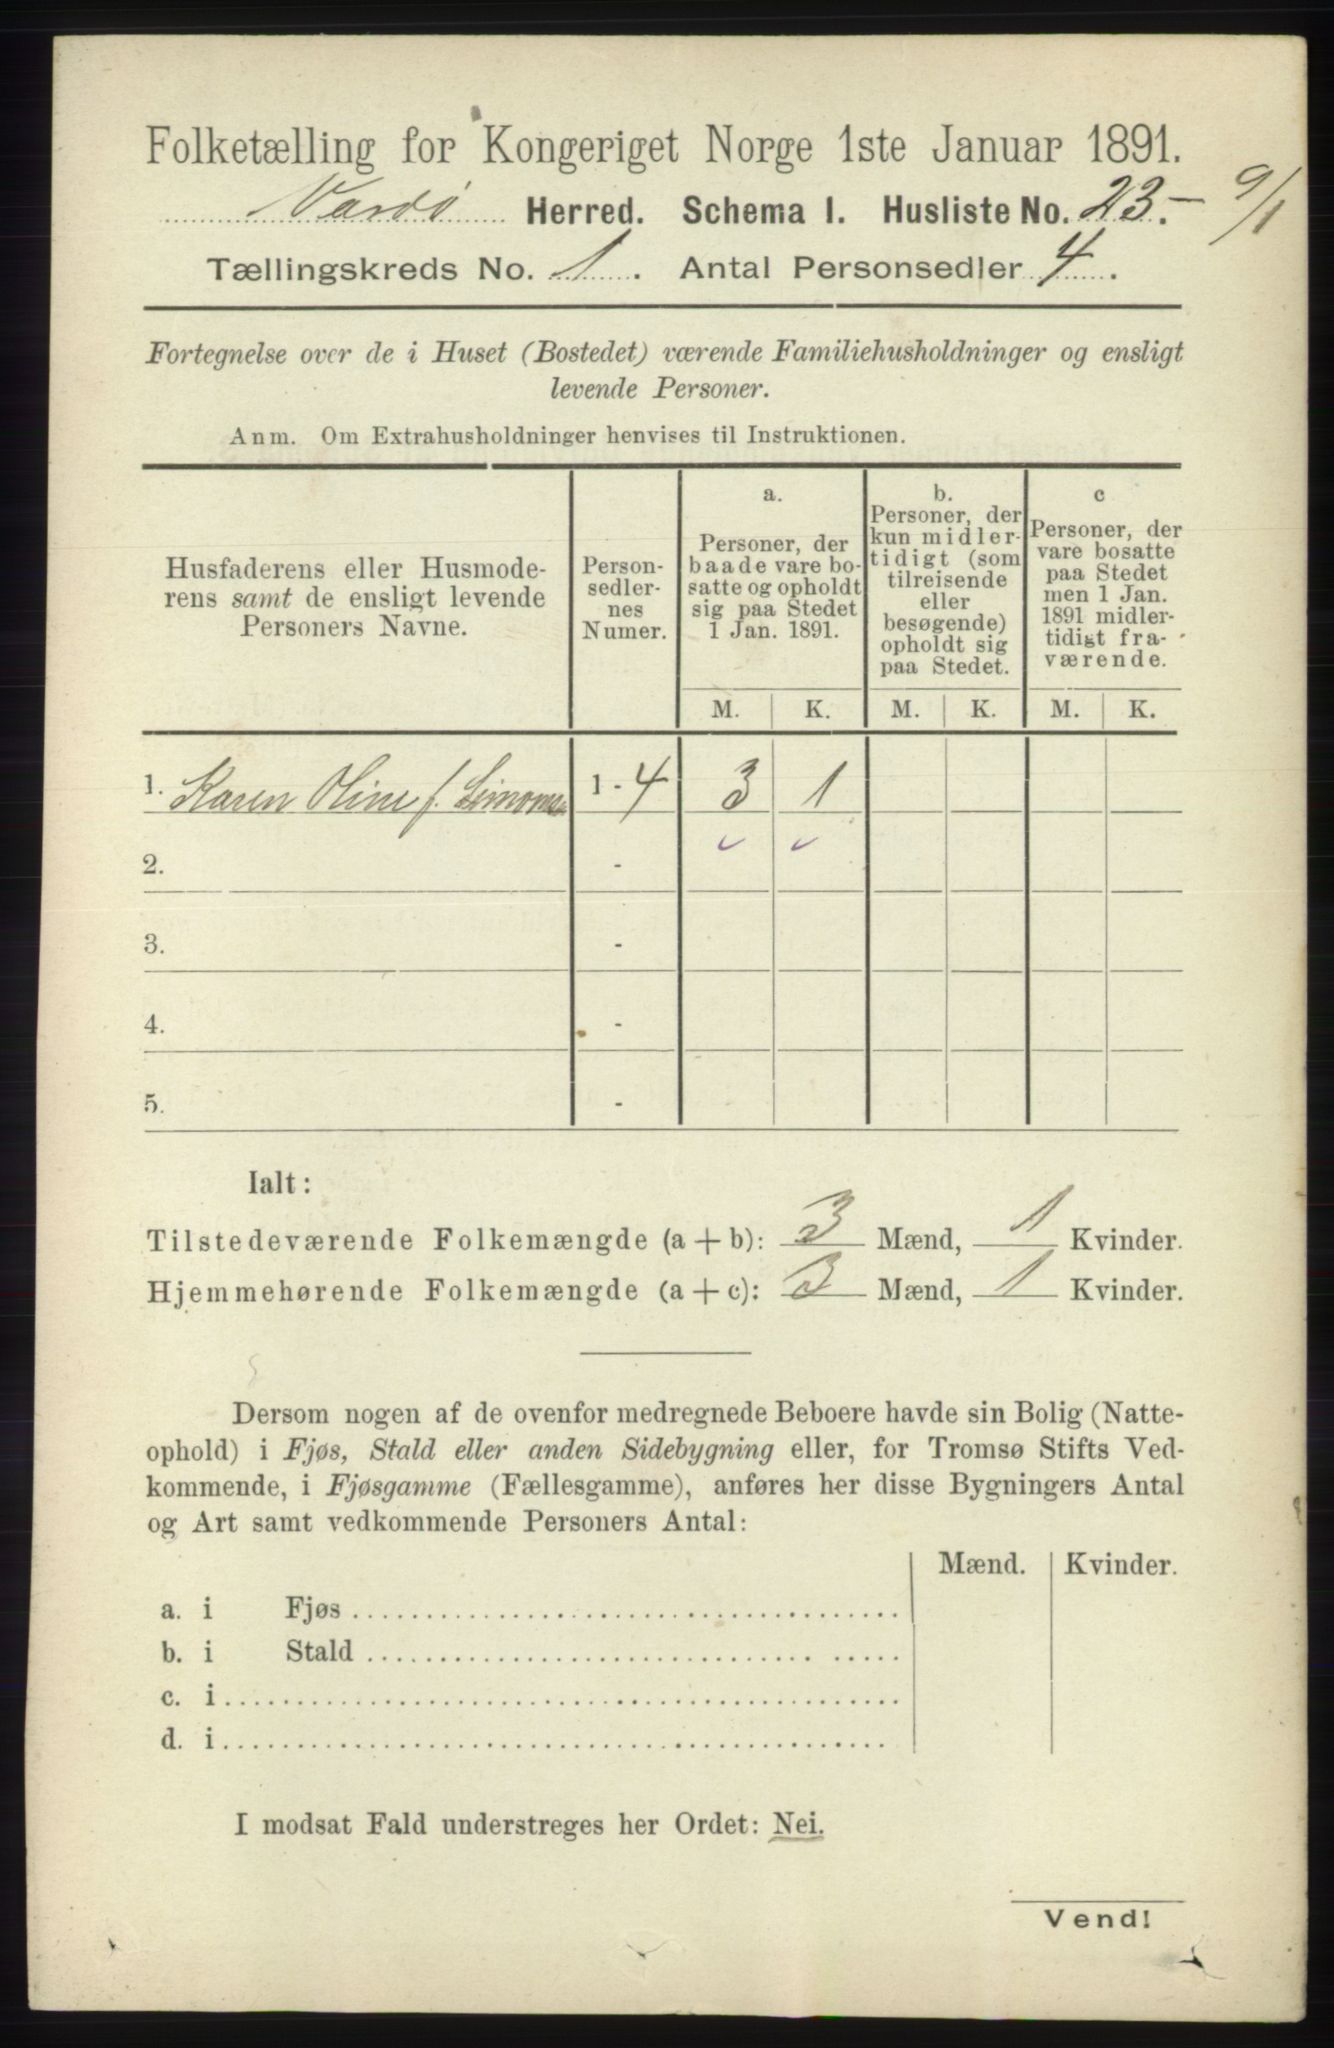 Folketælling for Kongeriget Norge 1ste Januar 1891.
Vardö Herred. Schema I. Husliste No. 23.- 9/1
Tællingskreds No. 1. Antal Personsedler 4.
Fortegnelse over de i Huset (Bostedet) værende Familiehusholdninger og ensligt
levende Personer.
Anm. Om Extrahusholdninger henvises til Instruktionen.
Husfaderens eller Husmode-
rens samt de ensligt levende
Personers Navne.
Person-
sedler-
nes
Numer.
a.
Personer, der
baade vare bo-
satte og opholdt
sig paa Stedet
1 Jan. 1891.
b.
Personer, der
kun midler-
tidigt (som
tilreisende
eller
besøgende)
opholdt sig
paa Stedet.
c
Personer, der
vare bosatte
paa Stedet
men 1 Jan.
1891 midler-
tidigt fra-
værende.
M. K. M. K. M. K.
1. Karen Oline f. Simonsen 1 - 4 3 1
2. -
3. -
4. -
5. -
Ialt:
Tilstedeværende Folkemængde (a + b): 3 Mænd, 1 Kvinder.
Hjemmehørende Folkemængde (a + c): 3 Mænd, 1 Kvinder.
Dersom nogen af de ovenfor medregnede Beboere havde sin Bolig (Natte-
ophold) i Fjøs, Stald eller anden Sidebygning eller, for Tromsø Stifts Ved-
kommende, i Fjøsgamme (Fællesgamme), anføres her disse Bygningers Antal
og Art samt vedkommende Personers Antal:
Mænd. Kvinder.
a. i Fjøs
b. i Stald
c. i
d. i
I modsat Fald understreges her Ordet: Nei.
Vend!